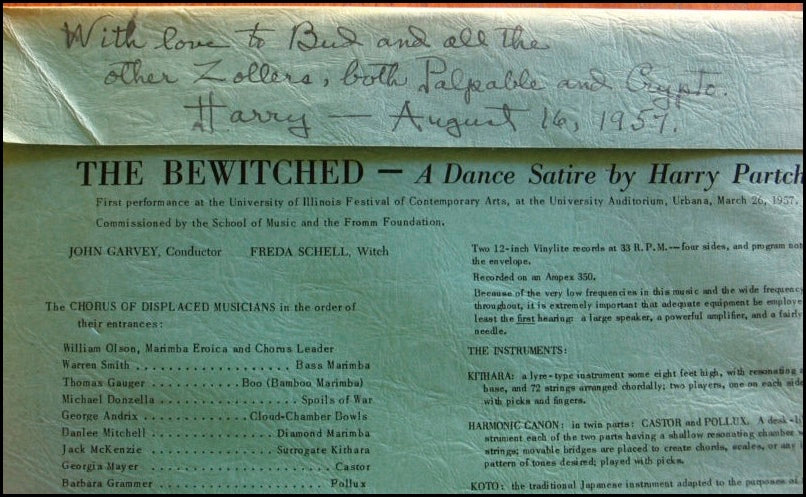 With love to Bud and all the
other Zollers, both Palpable and Crypto.
Harry — August 16, 1957.
THE BEWITCHED — A Dance Satire by Harry Partch
First performance at the University of Illinois Festival of Contemporary Arts, at the University Auditorium, Urbana, March 26, 1957.
Commissioned by the School of Music and the Fromm Foundation.
JOHN GARVEY, Conductor FREDA SCHELL, Witch
The CHORUS OF DISPLACED MUSICIANS in the order of
their entrances:
William Olson, Marimba Eroica and Chorus Leader
Warren Smith . . . . . . . . . . . . . . . . . . Bass Marimba
Thomas Gauger . . . . . . . . . . . Boo (Bamboo Marimba)
Michael Donzella . . . . . . . . . . . . . . . . . Spoils of War
George Andrix . . . . . . . . . . . . Cloud-Chamber Bowls
Danlee Mitchell . . . . . . . . . . . . . . Diamond Marimba
Jack McKenzie . . . . . . . . . . . . . . Surrogate Kithara
Georgia Mayer . . . . . . . . . . . . . . . . . . . . . . Castor
Barbara Grammer . . . . . . . . . . . . . . . . . . . . Pollux
Two 12-inch Vinylite records at 33 R.P.M.—four sides, and program not
the envelope.
Recorded on an Ampex 350.
Because of the very low frequencies in this music and the wide frequency
throughout, it is extremely important that adequate equipment be employe
least the first hearing: a large speaker, a powerful amplifier, and a fairly
needle.
THE INSTRUMENTS:
KITHARA: a lyre-type instrument some eight feet high, with resonating
base, and 72 strings arranged chordally; two players, one on each side
with picks and fingers.
HARMONIC CANON: in twin parts: CASTOR and POLLUX. A desk-li
strument each of the two parts having a shallow resonating chamber
strings; movable bridges are placed to create chords, scales, or any
pattern of tones desired; played with picks.
KOTO: the traditional Japanese instrument adapted to the purposes of